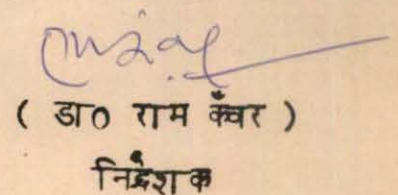 ( डा० राम कँवर )
निर्देशक